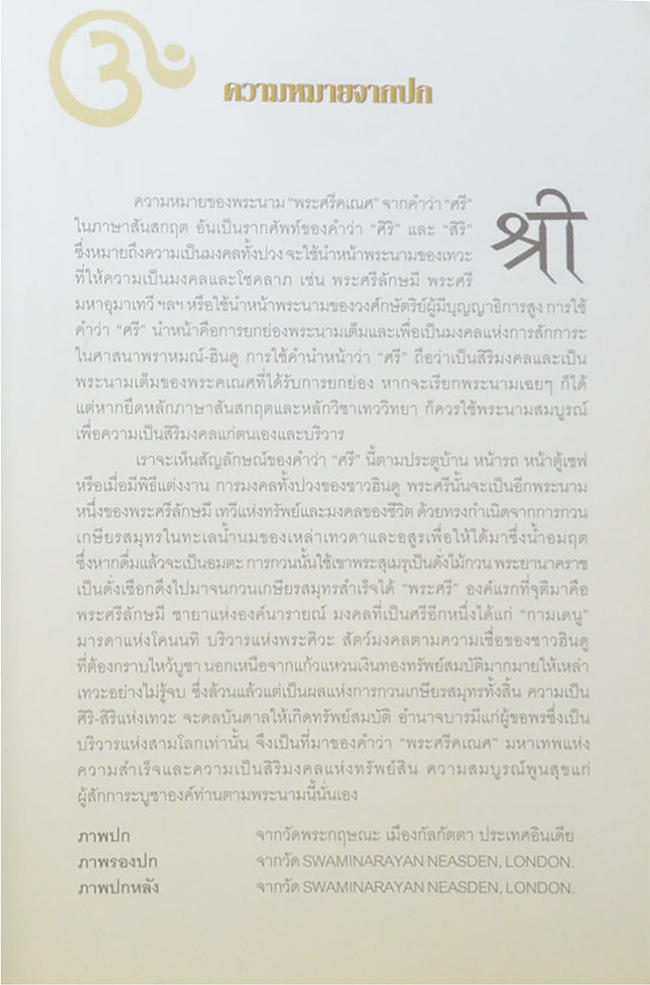 ความหมายจากปก
ความหมายของพระนาม “พระศรีคเณศ” จากคำว่า “ศรี”
ในภาษาสันสกฤต อันเป็นรากศัพท์ของคำว่า “ศิริ” และ “สิริ”
ซึ่งหมายถึงความเป็นมงคลทั้งปวง จะใช้นำหน้าพระนามของเทวะ
ที่ให้ความเป็นมงคลและโชคลาภ เช่น พระศรีลักษมี พระศรี
श्री
มหาอุมาเทวี ฯลฯ หรือใช้นำหน้าพระนามของวงศ์กษัตริย์ผู้มีบุญญาธิการสูง การใช้
คำว่า “ศรี” นำหน้าคือการยกย่องพระนามเต็มและเพื่อเป็นมงคลแห่งการสักการะ
ในศาสนาพราหมณ์-ฮินดู การใช้คำนำหน้าว่า “ศรี” ถือว่าเป็นสิริมงคลและเป็น
พระนามเต็มของพระคเณศที่ได้รับการยกย่อง หากจะเรียกพระนามเฉยๆ ก็ได้
แต่หากยึดหลักภาษาสันสกฤตและหลักวิชาเทววิทยา ก็ควรใช้พระนามสมบูรณ์
เพื่อความเป็นสิริมงคลแก่ตนเองและบริวาร
เราจะเห็นสัญลักษณ์ของคำว่า “ศรี” นี้ตามประตูบ้าน หน้ารถ หน้าตู้เซฟ
หรือเมื่อมีพิธีแต่งงาน การมงคลทั้งปวงของชาวฮินดู พระศรีนั้นจะเป็นอีกพระนาม
หนึ่งของพระศรีลักษมี เทวีแห่งทรัพย์และมงคลของชีวิต ด้วยทรงกำเนิดจากการกวน
เกษียรสมุทรในทะเลน้ำนมของเหล่าเทวดาและอสูรเพื่อให้ได้มาซึ่งน้ำอมฤต
ซึ่งหากดื่มแล้วจะเป็นอมตะ การกวนนั้นใช้เขาพระสุเมรุเป็นดั่งไม้กวน พระยานาคราช
เป็นดั่งเชือกดึงไปมาจนกวนเกษียรสมุทรสำเร็จได้ “พระศรี” องค์แรกที่จุติมาคือ
พระศรีลักษมี ชายาแห่งองค์นารายณ์ มงคลที่เป็นศรีอีกหนึ่งได้แก่ “กามเดนู”
มารดาแห่งโคนนทิ บริวารแห่งพระศิวะ สัตว์มงคลตามความเชื่อของชาวฮินดู
ที่ต้องกราบไหว้บูชา นอกเหนือจากแก้วแหวนเงินทองทรัพย์สมบัติมากมายให้เหล่า
เทวะอย่างไม่รู้จบ ซึ่งล้วนแล้วแต่เป็นผลแห่งการกวนเกษียรสมุทรทั้งสิ้น ความเป็น
ศิริ-สิริแห่งเทวะ จะดลบันดาลให้เกิดทรัพย์สมบัติ อำนาจบารมีแก่ผู้ขอพรซึ่งเป็น
บริวารแห่งสามโลกเท่านั้น จึงเป็นที่มาของคำว่า “พระศรีคเณศ” มหาเทพแห่ง
ความสำเร็จและความเป็นสิริมงคลแห่งทรัพย์สิน ความสมบูรณ์พูนสุขแก่
ผู้สักการะบูชาองค์ท่านตามพระนามนี้นั่นเอง
ภาพปก จากวัดพระกฤษณะ เมืองกัลกัตตา ประเทศอินเดีย
ภาพรองปก จากวัด SWAMINARAYAN NEASDEN, LONDON.
ภาพปกหลัง จากวัด SWAMINARAYAN NEASDEN, LONDON.